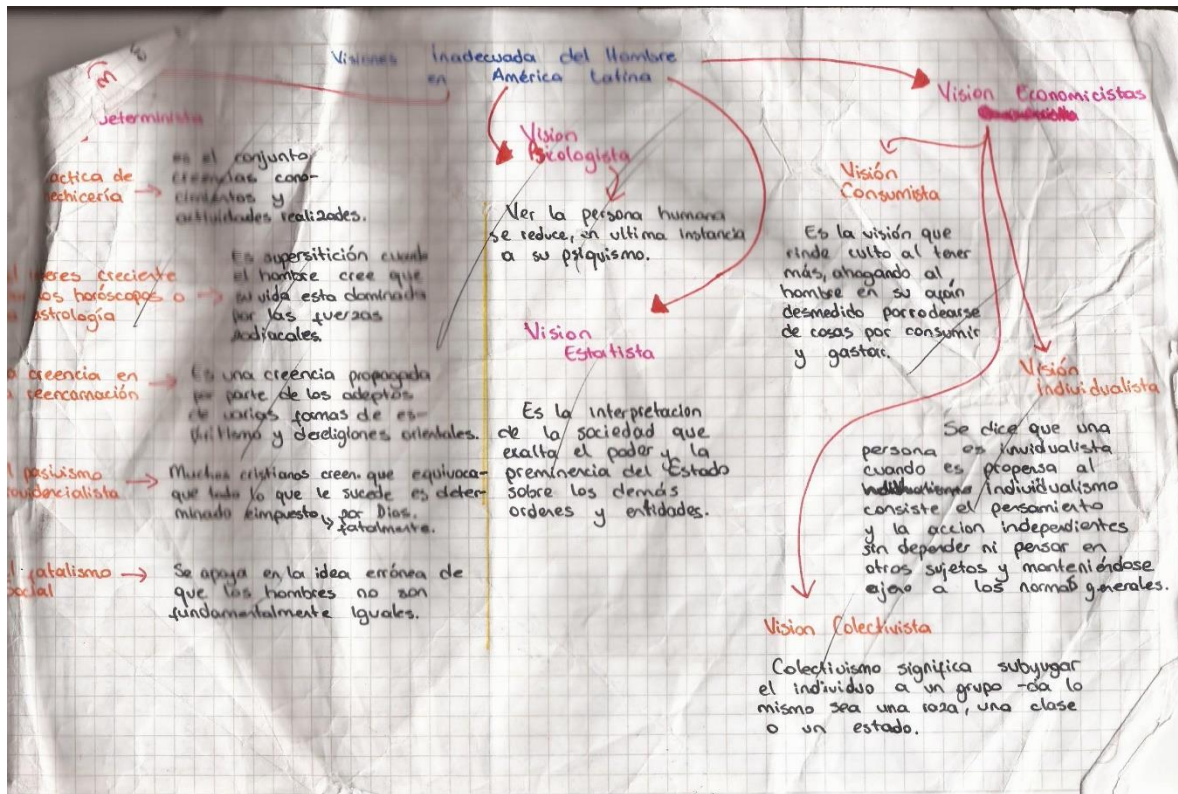 Visiones inadecuada del Hombre
en América Latina
Determinista
actica de
echicería
es el conjunto
creencias cono-
cimientos y
actividades realizades.
eres creciente
los horóscopos o
astrología
Es supersitición cuando
el hombre cree que
su vida esta dominada
por las fuerzas
zodiacales.
creencia en
reencarnación
Es una creencia propagada
por parte de los adeptos
de varias formas de es-
piritismo y dereligiones orientales.
pasivismo
ovidencialista
Muchos cristianos creen que equivoca-
que todo lo que le sucede es deter-
minado eimpuesto por Dios.
fatalmente.
fatalismo
social
Se apoya en la idea errónea de
que los hombres no son
fundamentalmente iguales.
Vision
Psicologista
Ver la persona humana
se reduce, en ultima instancia
a su psiquismo.
Vision
Estatista
Es la interpretacion
de la sociedad que
exalta el poder y la
preminencia del Estado
sobre los demás
ordenes y entidades.
Vision Economicistas
Visión
Consumista
Es la visión que
rinde culto al tener
más, ahogando al
hombre en su afán
desmedido porrodearse
de cosas por consumir
y gastar.
Visión
individualista
Se dice que una
persona es invidualista
cuando es propensa al
individualismo
consiste el pensamiento
y la accion independientes
sin depender ni pensar en
otros sujetos y manteniéndose
ajeno a los normas generales.
Vision Colectivista
Colectivismo significa subyugar
el individuo a un grupo -da lo
mismo sea una raza, una clase
o un estado.